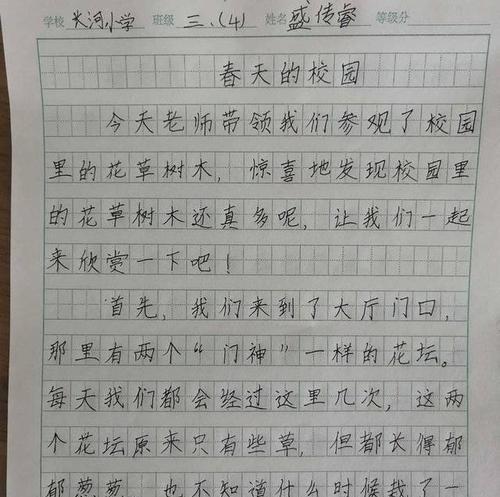 学校 长河小学 班级 三.(4) 姓名 盛传睿 等级分
春天的校园
今天老师带领我们参观了校园
里的花草树木，惊喜地发现校园里
的花草树木还真多呢，让我们一起
来欣赏一下吧！
首先，我们来到了大厅门口，
那里有两个“门神”一样的花坛。
每天我们都会经过这里几次，这两
个花坛原来只有些草，但都长得郁
郁葱葱，也不知道什么时候栽了一